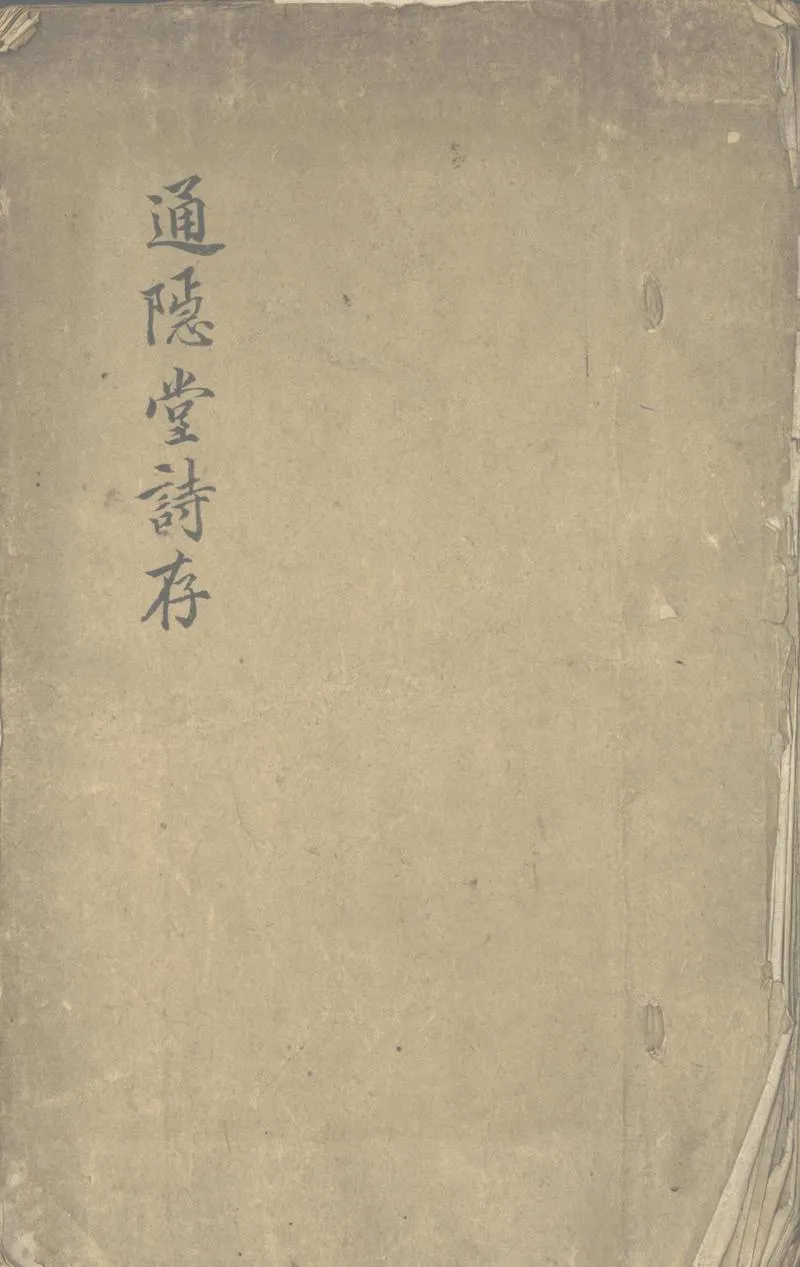 通隠堂詩存